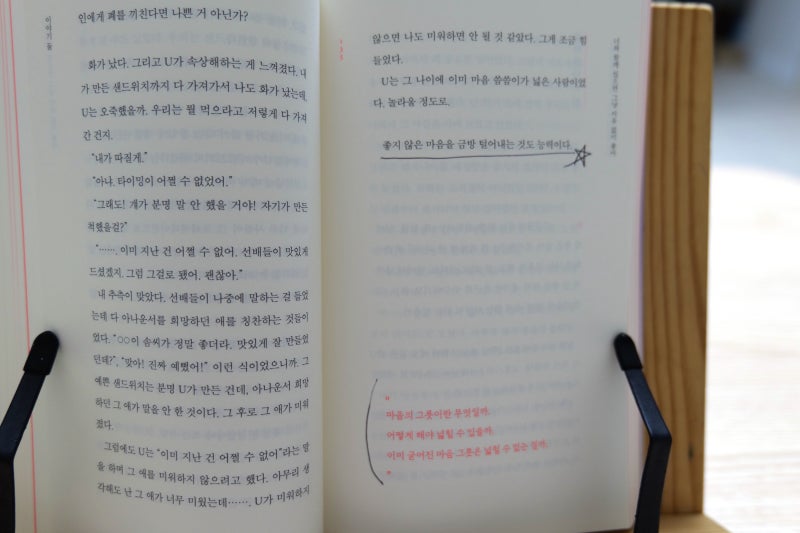 인에게 폐를 끼친다면 나쁜 거 아닌가?
화가 났다. 그리고 U가 속상해하는 게 느껴졌다. 내
가 만든 샌드위치까지 다 가져가서 나도 화가 났는데,
U는 오죽했을까. 우리는 뭘 먹으라고 저렇게 다 가져
간 건지.
“내가 따질게.”
“아냐. 타이밍이 어쩔 수 없었어.”
“그래도! 걔가 분명 말 안 했을 거야! 자기가 만든
척했을걸?”
“……. 이미 지난 건 어쩔 수 없어. 선배들이 맛있게
드셨겠지. 그럼 그걸로 됐어. 괜찮아.”
내 추측이 맞았다. 선배들이 나중에 말하는 걸 들었
는데 다 아나운서를 희망하던 애를 칭찬하는 것들이
었다. “○○이 솜씨가 정말 좋더라. 맛있게 잘 만들었
던데?”, “맞아! 진짜 예뻤어!” 이런 식이었으니까. 그
예쁜 샌드위치는 분명 U가 만든 건데, 아나운서 희망
하던 그 애가 말을 안 한 것이다. 그 후로 그 애가 미워
졌다.
그럼에도 U는 “이미 지난 건 어쩔 수 없어”라는 말
을 하며 그 애를 미워하지 않으려고 했다. 아무리 생
각해도 난 그 애가 너무 미웠는데……. U가 미워하지
이야기 둘
않으면 나도 미워하면 안 될 것 같았다. 그게 조금 힘
들었다.
U는 그 나이에 이미 마음 씀씀이가 넓은 사람이었
다. 놀라울 정도로.
좋지 않은 마음을 금방 털어내는 것도 능력이다.
“
마음의 그릇이란 무엇일까.
어떻게 해야 넓힐 수 있을까.
이미 굳어진 마음 그릇은 넓힐 수 없는 걸까.
”